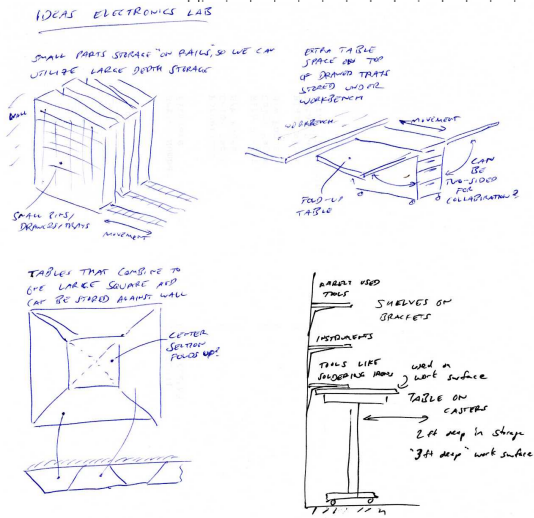 IDEAS ELECTRONICS LAB
SMALL PARTS STORAGE "ON RAILS", SO WE CAN
UTILIZE LARGE DEPTH STORAGE
WALL
SMALL BINS/
DRAWERS/TRAYS
MOVEMENT
EXTRA TABLE
SPACE ON TOP
OF DRAWER TRAYS
STORED UNDER
WORKBENCH
WORKBENCH
MOVEMENT
FOLD-UP
TABLE
CAN
BE
TWO-SIDED
FOR
COLLABORATION?
TABLES THAT COMBINE TO
ONE LARGE SQUARE AND
CAN BE STORED AGAINST WALL
CENTER
SECTION
FOLDS UP?
RARELY USED
TOOLS
SHELVES ON
BRACKETS
INSTRUMENTS
TOOLS LIKE
SOLDERING IRON
used on
work surface
TABLE ON
CASTERS
2 ft deep in storage
"3 ft deep" work surface